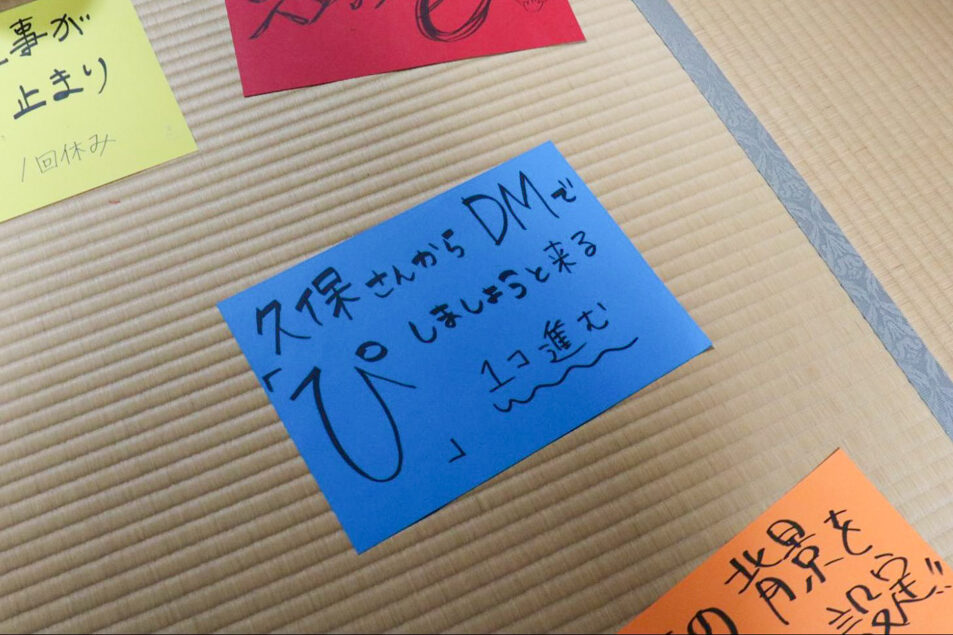 事が
止まり
1回休み
久保さんからDMで
「ぴ」しましょうと来る
1コ進む
の背景を
設定!!